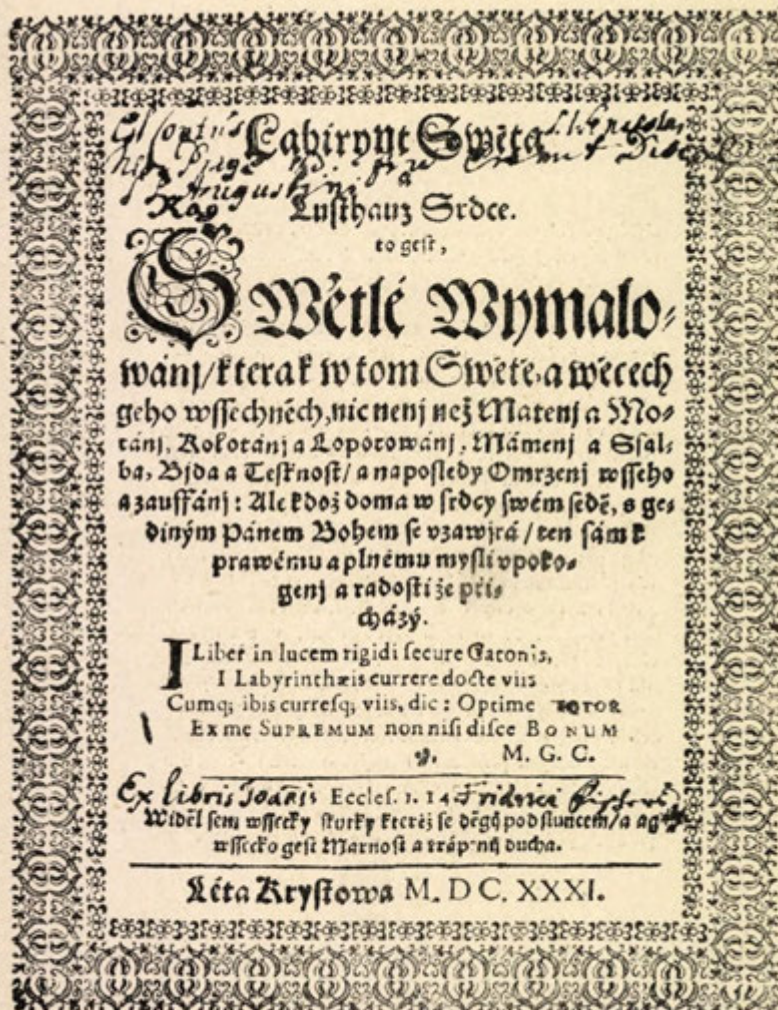 Labirynt Swěta
a
Lusthauz Srdce.
to gest,
SWětlé Wymalo-
wánj/kterak w tom Swětě, a wěcech
geho wssechněch, nic nenj než Matenj a Mo-
tánj, Kolotánj a Lopotowánj, Mámenj a Ssal-
ba, Bjda a Tesknost/ a naposledy Omrzenj wsseho
a zauffánj: Ale kdož doma w srdcy swém sedě, s ge-
diným Pánem Bohem se vzawjrá / ten sám k
prawému a plnému mysli vpoko-
genj a radosti že při-
cházý.
I Liber in lucem rigidi secure Catonis,
I Labyrinthæis currere docte viis
Cumq; ibis curresq; viis, dic: Optime
Ex me SUPREMUM non nisi disce BONUM
M. G. C.
Ex libris Joannis Eccles. 1. 14.
Widěl sem wssecky skutky kteréž se děgj pod sluncem/ a
wssecko gest Marnost a trápenj ducha.
Léta Krystowa M. DC. XXXI.